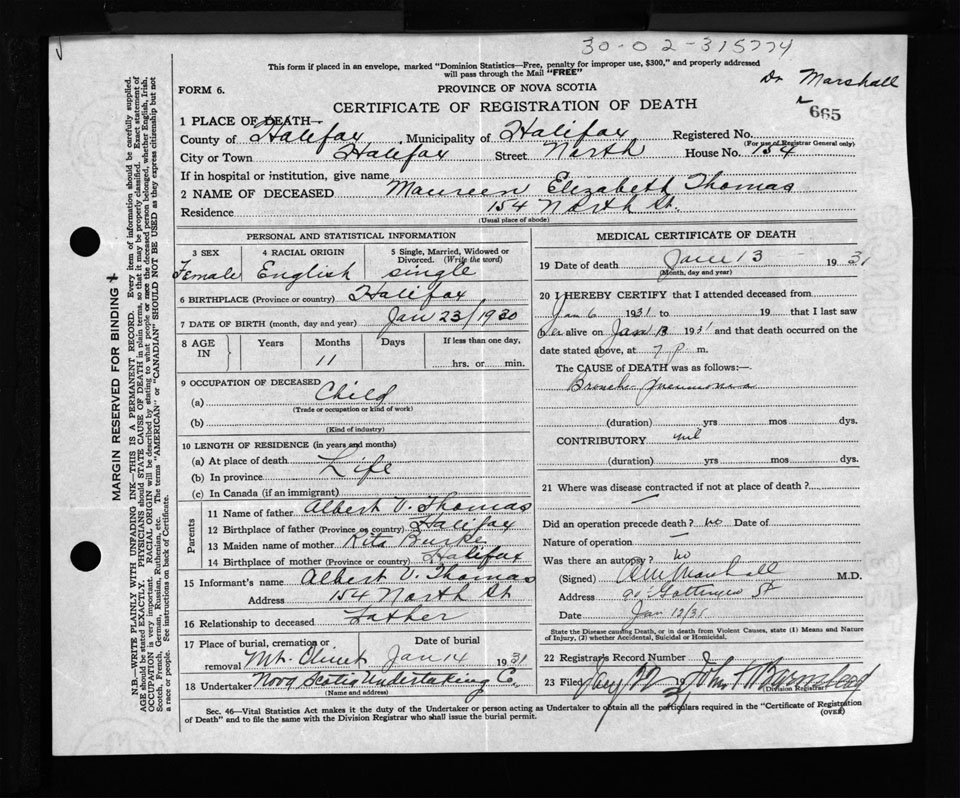 30-02-315774
This form if placed in an envelope, marked "Dominion Statistics—Free, penalty for improper use, $300," and properly addressed
will pass through the Mail "FREE"
Dr Marshall
FORM 6.
PROVINCE OF NOVA SCOTIA
665
CERTIFICATE OF REGISTRATION OF DEATH
1 PLACE OF DEATH—
County of Halifax Municipality of Halifax Registered No.
(For use of Registrar General only)
City or Town Halifax Street North House No. 154
If in hospital or institution, give name
2 NAME OF DECEASED Maureen Elizabeth Thomas
Residence 154 North St.
(Usual place of abode)
PERSONAL AND STATISTICAL INFORMATION
3 SEX 4 RACIAL ORIGIN 5 Single, Married, Widowed or
Divorced. (Write the word)
Female English single
6 BIRTHPLACE (Province or country) Halifax
7 DATE OF BIRTH (month, day and year) Jan 23/1930
8 AGE IN Years Months Days If less than one day,
11 hrs. or min.
9 OCCUPATION OF DECEASED
(a) Child
(Trade or occupation or kind of work)
(b)
(Kind of industry)
10 LENGTH OF RESIDENCE (in years and months)
(a) At place of death
(b) In province Life
(c) In Canada (if an immigrant)
Parents
11 Name of father Albert V. Thomas
12 Birthplace of father (Province or country) Halifax
13 Maiden name of mother Rita Burke
14 Birthplace of mother (Province or country) Halifax
15 Informant's name Albert V. Thomas
Address 154 North St
16 Relationship to deceased Father
17 Place of burial, cremation or removal Date of burial
Mt. Olivet Jan 14 1931
18 Undertaker Nova Scotia Undertaking Co.
(Name and address)
MEDICAL CERTIFICATE OF DEATH
19 Date of death Jan 13 1931
(Month, day and year)
20 I HEREBY CERTIFY that I attended deceased from
Jan 6 1931 to 19 that I last saw
her alive on Jan 13 1931 and that death occurred on the
date stated above, at 7 P. m.
The CAUSE of DEATH was as follows:—
Broncho Pneumonia
(duration) yrs mos dys.
CONTRIBUTORY nil
(duration) yrs mos dys.
21 Where was disease contracted if not at place of death?
Did an operation precede death? no Date of
Nature of operation
Was there an autopsy? no
(Signed) Marshall M.D.
Address Gottingen St
Date Jan 12/31
State the Disease causing Death, or in death from Violent Causes, state (1) Means and Nature
of Injury, (2) whether Accidental, Suicidal or Homicidal.
22 Registrar's Record Number
23 Filed 22 19 John
(Division Registrar)
Sec. 46—Vital Statistics Act makes it the duty of the Undertaker or person acting as Undertaker to obtain all the particulars required in the "Certificate of Registration
of Death" and to file the same with the Division Registrar who shall issue the burial permit.
(OVER)
MARGIN RESERVED FOR BINDING
N.B.—WRITE PLAINLY WITH UNFADING INK—THIS IS A PERMANENT RECORD. Every item of information should be carefully supplied.
AGE should be stated EXACTLY. PHYSICIANS should STATE CAUSE OF DEATH in plain terms, so that it may be properly classified. Exact statement of
OCCUPATION is very important. RACIAL ORIGIN will be described by stating to what people or race the deceased person belonged, whether English, Irish,
Scotch, French, German, Russian, Ruthenian, etc. The terms "AMERICAN" or "CANADIAN" SHOULD NOT BE USED as they express citizenship but not
a race or people. See instructions on back of Certificate.